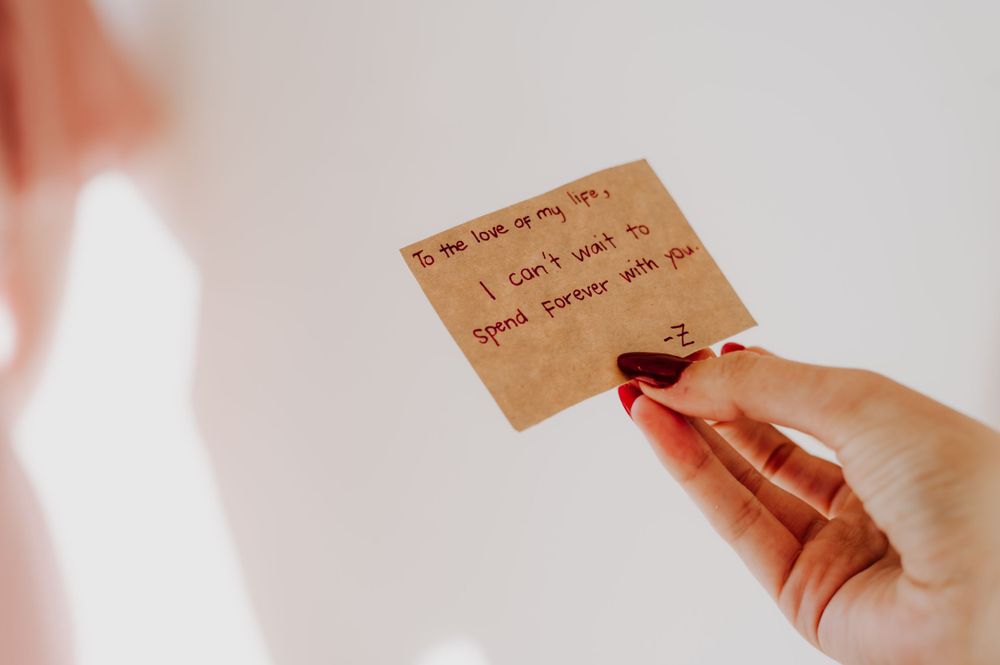 To the love of my life,
I can't wait to
spend forever with you.
-Z